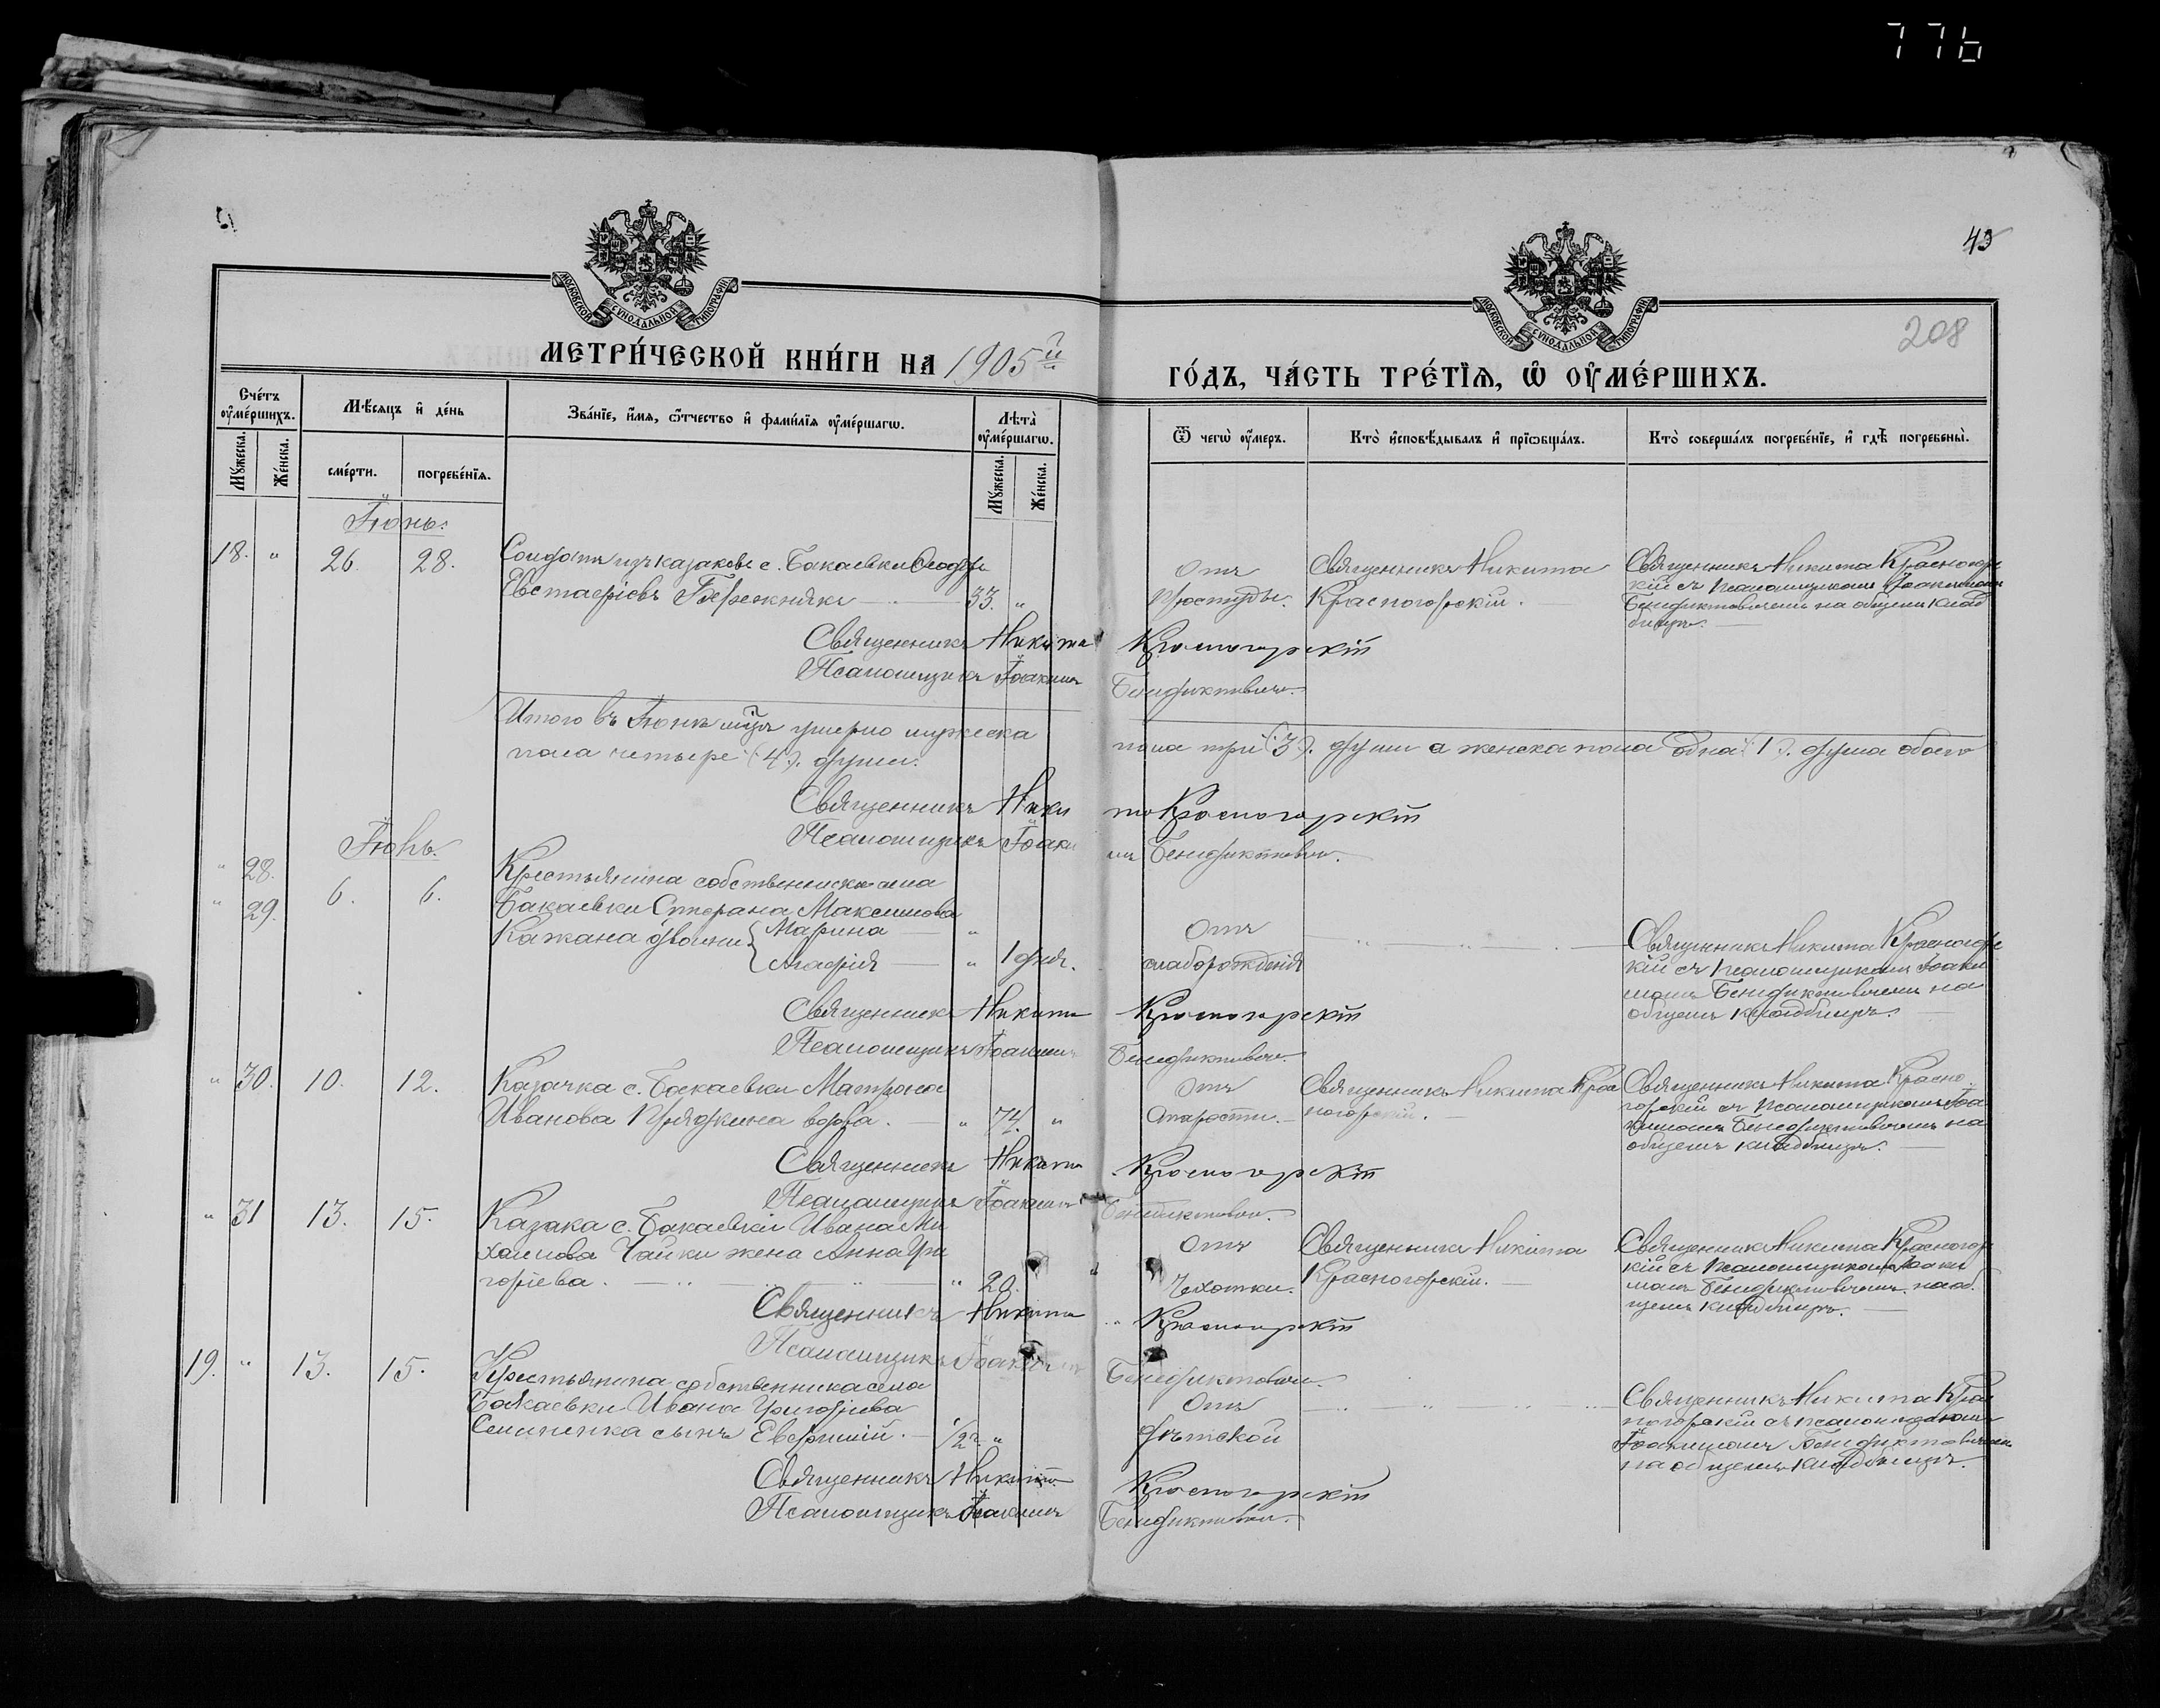 776
45
208
МОСКОВСКОЙ СѴНОДАЛЬНОЙ ТИПОГРАФІИ
МОСКОВСКОЙ СѴНОДАЛЬНОЙ ТИПОГРАФІИ
МЕТРИ́ЧЕСКОЙ КНИ́ГИ НА 1905й
ГО́ДЪ, ЧА́СТЬ ТРЕ́ТІѦ, Ѡ҆ ОУ҆МЕ́РШИХЪ.
Сче́тъ оу҆ме́ршихъ.
Мѣ́сѧцъ и҆ де́нь
Зва́нїе, и҆́мѧ, ѻ҆́тчество и҆ фами́лїѧ оу҆ме́ршагѡ.
Лѣ́та оу҆ме́ршагѡ.
Ѿ чегѡ̀ оу҆́меръ.
Кто̀ и҆сповѣ́дывалъ и҆ прїѡбща́лъ.
Кто̀ соверша́лъ погребе́нїе, и҆ гдѣ̀ погребены̀.
Мꙋ́жеска.
Же́нска.
сме́рти.
погребе́нїѧ.
Мꙋ́жеска.
Же́нска.
Іюнь.
18. " 26. 28. Солдатъ изъ казаковъ с. Бакаевки Ѳеодоръ
Евстафіевъ Бережнякъ 33. "
Отъ простуды.
Священникъ Никита
Красногорскій.
Священникъ Никита Красногор
скій съ псаломщикомъ Іоакимомъ
Бенедиктовичемъ на общемъ клад
бищѣ.
Священникъ Никита Красногорскій
Псаломщикъ Іоакимъ Бенедиктовичъ.
Итого въ Іюнѣ мцѣ умерло мужеска пола три (3). души а женска пола одна (1). душа обоего
пола четыре (4). души.
Священникъ Никита Красногорскій
Псаломщикъ Іоакимъ Бенедиктовичъ.
Іюль.
" 28.
" 29. 6. 6. Крестьянина собственника села
Бакаевки Стефана Максимова
Кажана двойни { Марина "
Агафія " 1 дня.
Отъ
слаборожденія
Священникъ Никита Красногор
скій съ псаломщикомъ Іоаки
момъ Бенедиктовичемъ на
общемъ кладбищѣ.
Священникъ Никита Красногорскій
Псаломщикъ Іоакимъ Бенедиктовичъ.
" 30. 10. 12. Казачка с. Бакаевки Матрона
Иванова Прядкина вдова. " 74. "
Отъ
старости.
Священникъ Никита Крас
ногорскій.
Священникъ Никита Красно
горскій съ псаломщикомъ Іоа
кимомъ Бенедиктовичемъ на
общемъ кладбищѣ.
Священникъ Никита Красногорскій
Псаломщикъ Іоакимъ Бенедиктовичъ.
" 31 13. 15. Казака с. Бакаевки Ивана Ми
хаилова Чайки жена Анна Гри
горіева. " 20.
Отъ
чахотки.
Священникъ Никита
Красногорскій.
Священникъ Никита Красногор
скій съ псаломщикомъ Іоаки
момъ Бенедиктовичемъ на об
щемъ кладбищѣ.
Священникъ Никита Красногорскій
Псаломщикъ Іоакимъ Бенедиктовичъ.
19. " 13. 15. Крестьянина собственника села
Бакаевки Ивана Григоріева
сынъ Евфимій. 1/2 "
Отъ
дѣтской
Священникъ Никита Крас
ногорскій съ псаломщикомъ
Іоакимомъ Бенедиктовичемъ
на общемъ кладбищѣ.
Священникъ Никита Красногорскій
Псаломщикъ Іоакимъ Бенедиктовичъ.